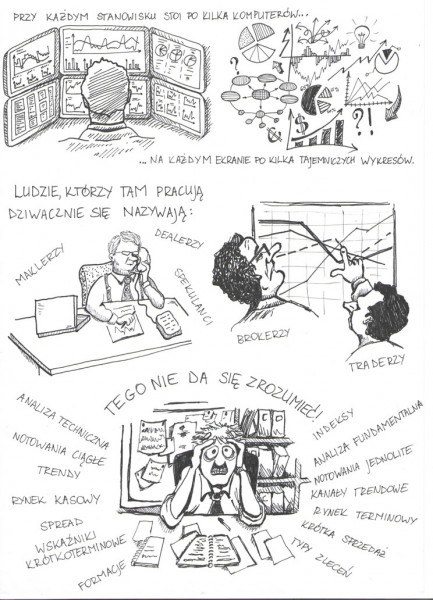 PRZY KAŻDYM STANOWISKU STOI PO KILKA KOMPUTERÓW...
?
$
?!
... NA KAŻDYM EKRANIE PO KILKA TAJEMNICZYCH WYKRESÓW.
LUDZIE, KTÓRZY TAM PRACUJĄ
DZIWACZNIE SIĘ NAZYWAJĄ:
MAKLERZY
DEALERZY
SPEKULANCI
BROKERZY
TRADERZY
TEGO NIE DA SIĘ ZROZUMIEĆ!
ANALIZA TECHNICZNA
NOTOWANIA CIĄGŁE
TRENDY
RYNEK KASOWY
SPREAD
WSKAŹNIKI
KRÓTKOTERMINOWE
FORMACJE
INDEKSY
ANALIZA FUNDAMENTALNA
NOTOWANIA JEDNOLITE
KANAŁY TRENDOWE
RYNEK TERMINOWY
KRÓTKA SPRZEDAŻ
TYPY ZLECEŃ